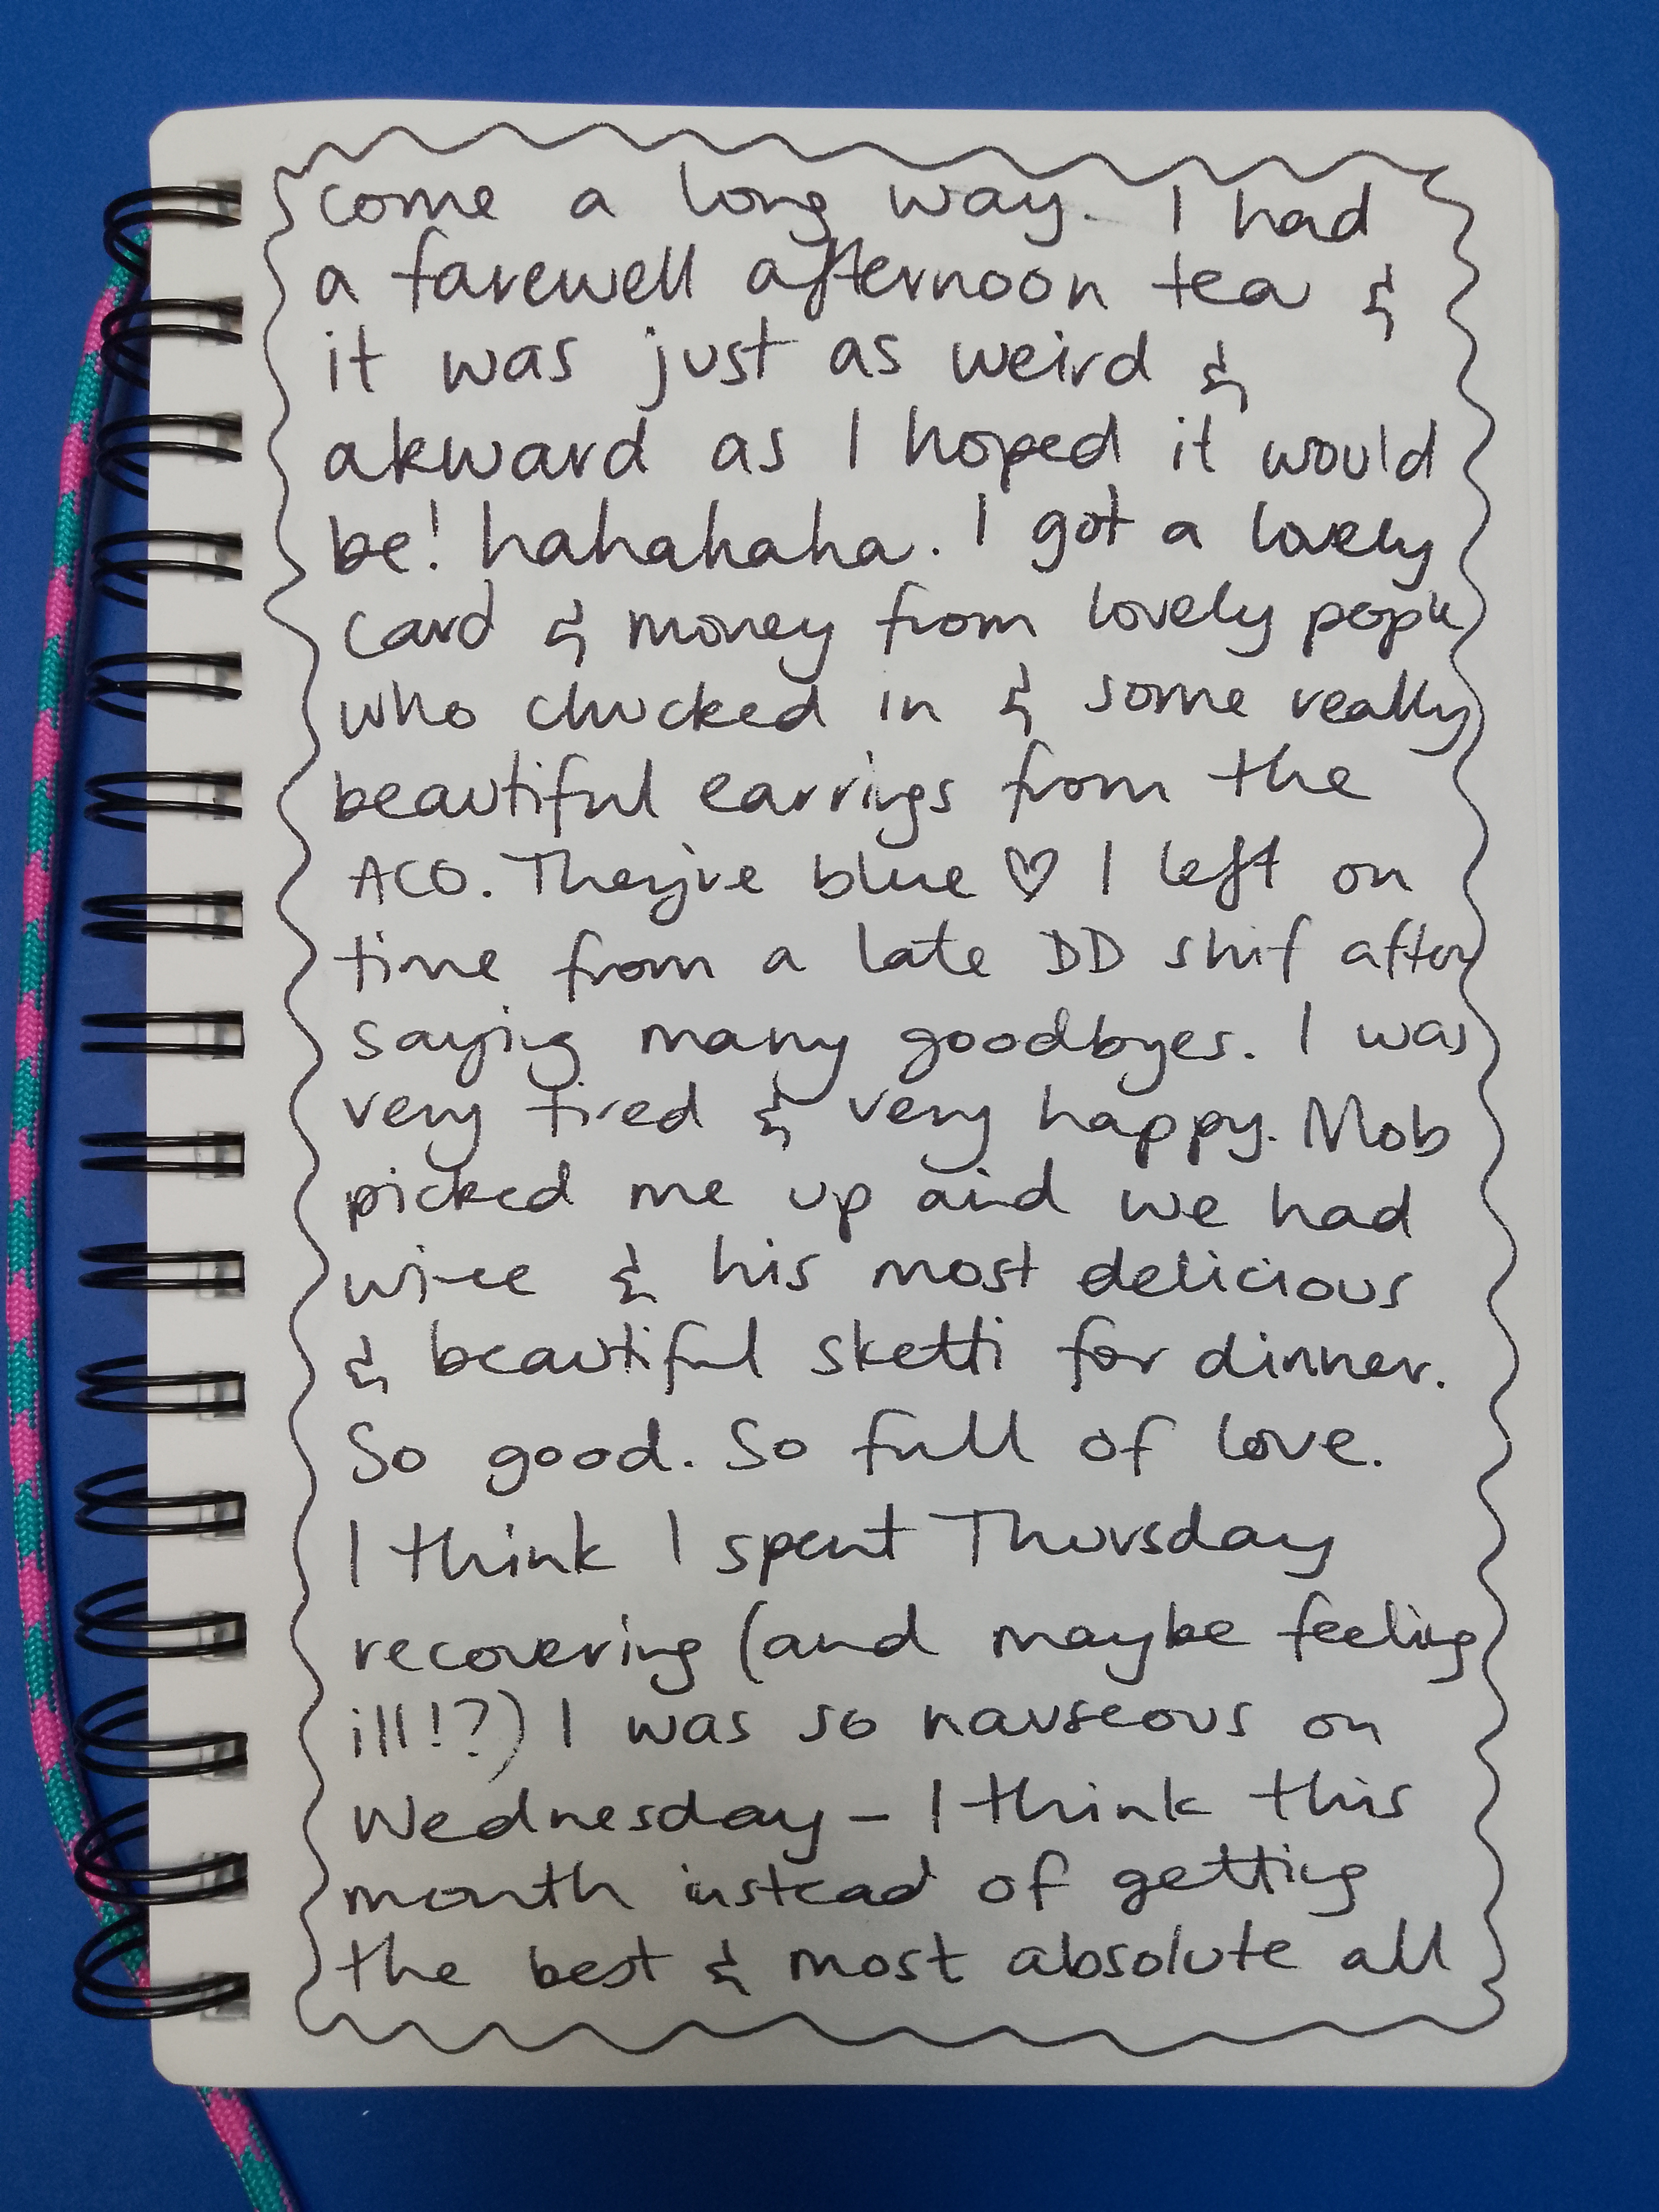 come a long way. I had
a farewell afternoon tea &
it was just as weird &
akward as I hoped it would
be! hahahaha. I got a lovely
card & money from lovely people
who chucked in & some really
beautiful earrings from the
ACO. They're blue ♡ I left on
time from a late DD shif after
saying many goodbyes. I was
very tired & very happy. Mob
picked me up and we had
wine & his most delicious
& beautiful sketti for dinner.
So good. So full of love.
I think I spent Thursday
recovering (and maybe feeling
ill!?) I was so nauseous on
Wednesday – I think this
month instead of getting
the best & most absolute all